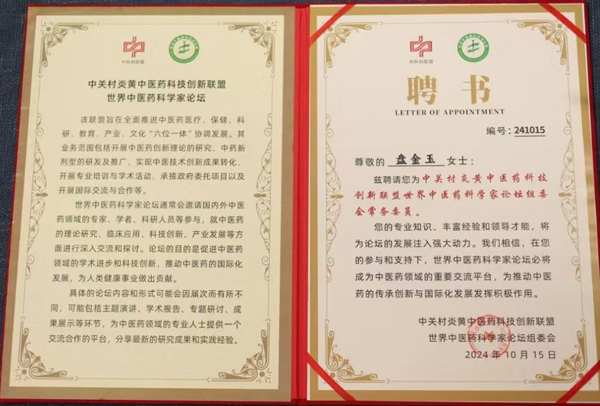 中关村炎黄中医药科技创新联盟
世界中医药科学家论坛
该联盟旨在全面推进中医药医疗、保健、科
研、教育、产业、文化“六位一体”协调发展。其
业务范围包括开展中医药创新理论的研究、中药新
剂型的研发及推广、实现中医技术创新成果转化、
开展专业培训与学术活动、承接政府委托项目以及
开展国际交流与合作等。
世界中医药科学家论坛通常会邀请国内外中医
药领域的专家、学者、科研人员等参与，就中医药
的理论研究、临床应用、科技创新、产业发展等方
面进行深入交流和探讨。论坛的目的是促进中医药
领域的学术进步和科技创新，推动中医药的国际化
发展，为人类健康事业做出贡献。
具体的论坛内容和形式可能会因届次而有所不
同，可能包括主题演讲、学术报告、专题研讨、成
果展示等环节，为中医药领域的专业人士提供一个
交流合作的平台，分享最新的研究成果和实践经验。
聘书
LETTER OF APPOINTMENT
编号：241015
尊敬的 盘金玉 女士：
兹聘请您为中关村炎黄中医药科技
创新联盟世界中医药科学家论坛组委
会常务委员。
您的专业知识、丰富经验和领导才能，将
为论坛的发展注入强大动力。我们相信，在您
的参与和支持下，世界中医药科学家论坛必将
成为中医药领域的重要交流平台，为推动中医
药的传承创新与国际化发展发挥积极作用。
中关村炎黄中医药科技创新联盟
世界中医药科学家论坛组委会
2024 年 10 月 15 日